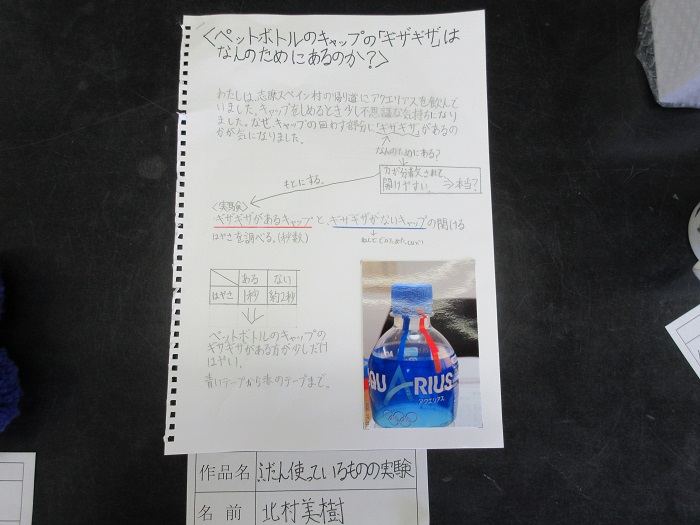 <ペットボトルのキャップの「キザギザ」は
なんのためにあるのか?>
わたしは、志摩スペイン村の帰り道にアクエリアスを飲んで
いました。キャップをしめるとき少し不思議な気持ちになり
ました。なぜ、キャップの回わす部分に「ギザギザ」があるの
かが気になりました。
なんのためにある?
力が分散されて、
開けやすい。⇒本当?
もとにする。
<実験>
ギザギザがあるキャップと、ギザギザがないキャップの開ける
はやさを調べる。(秒数)
ある ない
はやさ 1秒 約2秒
ペットボトルのキャップの
ギザギザがある方が少しだけ
はやい。
青いテープから赤のテープまで。
AQUARIUS
アクエリアス
作品名 ふだん使っているものの実験
名前 北村美樹